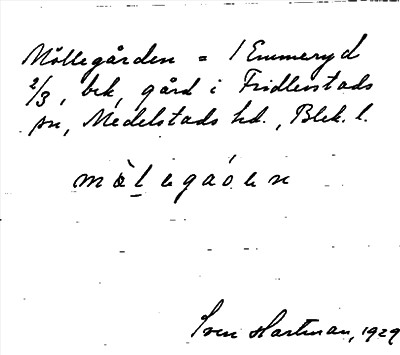 Möllegården = 1 Emmeryd
2/3, bek, gård i Fridlevstads
sn, Medelstads hd., Blek. l.
Sven Hartman, 1929